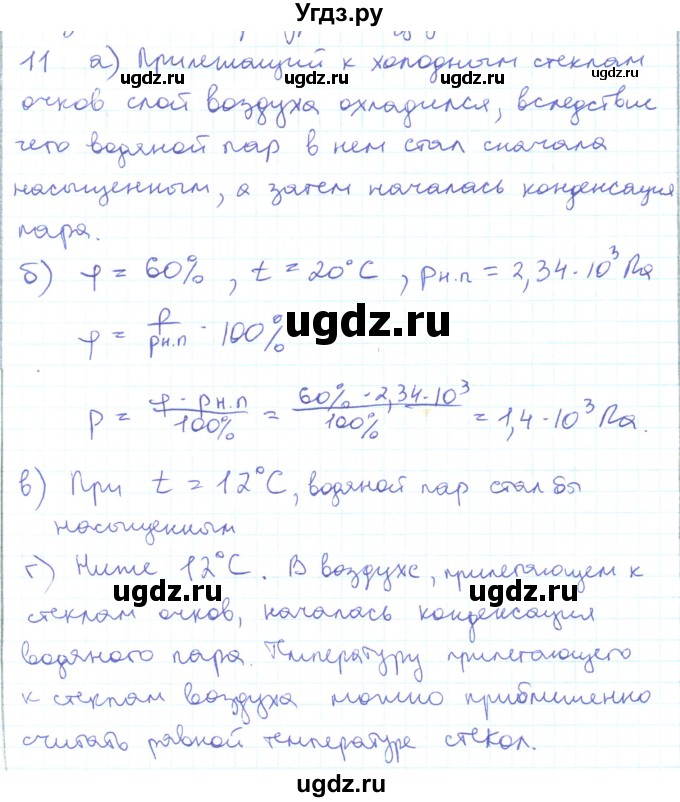 Угдз.ру
11 а) Прилежащий к холодным стеклам
очков слой воздуха охладился, вследствие
чего водяной пар в нем стал сначала
насыщенным, а затем началась конденсация
пара.
б) φ = 60%, t = 20°C, pн.п = 2,34·10³ Па
φ = p/pн.п · 100%
p = φ·pн.п/100% = 60%·2,34·10³/100% = 1,4·10³ Па.
в) При t = 12°C, водяной пар стал бы
насыщенным
г) Ниже 12°C. В воздухе, прилегающем к
стеклам очков, началась конденсация
водяного пара. Температуру прилегающего
к стеклам воздуха можно приближенно
считать равной температуре стекол.
ugdz.ru
ugdz.ru
ugdz.ru
ugdz.ru
ugdz.ru
ugdz.ru
ugdz.ru
ugdz.ru
ugdz.ru
ugdz.ru
ugdz.ru
ugdz.ru